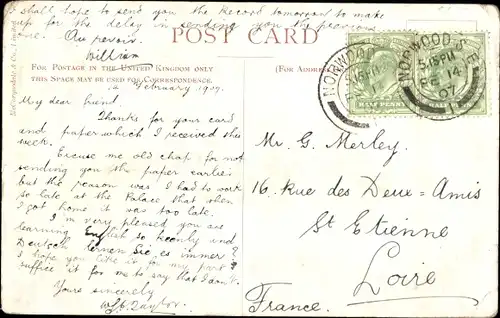 I shall hope to send you the Record tomorrow to make
up for the delay in sending you the previous
one. Au revoir
William
POST CARD
FOR POSTAGE IN THE UNITED KINGDOM ONLY
THIS SPACE MAY BE USED FOR CORRESPONDENCE.
(FOR ADDRESS
14 February 1907.
My dear friend.
Thanks for your card
and paper which I received this
week.
Excuse me old chap for not
sending you the paper earlier
but the reason was I had to work
so late at the Palace that when
I got home it was too late.
I'm very pleased you are
learning English so keenly und
Deutsch lernen Sie es immer?
I hope you like it for my part
suffice it for me to say that I don't
Yours sincerely
Wm. Taylor.
NORWOOD
HALF PENNY
NORWOOD S.E.
5.15 PM
FE 14
07
HALF PENNY
Mr G. Merley.
16. Rue des Deux=Amis
St Etienne
Loire
France.